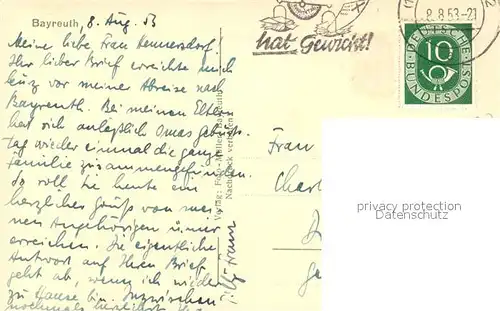 Bayreuth, 8. Aug. 53
Meine liebe Frau Hennersdorf.
Ihr lieber Brief erreichte mich
kurz vor meiner Abreise nach
Bayreuth. Bei meinen Eltern
hat sich anläßlich Omas Geburts-
tag wieder einmal die ganze
Familie zusammengefunden.
So soll Sie heute ein
herzlicher Gruß von
meinen Angehörigen
erreichen. Die eigentliche
Antwort auf Ihren Brief
geht ab, wenn ich wieder
zu Hause bin. Inzwischen
nochmals herzlichst
Verlag: Foto-Müller, Bayreuth
Nachdruck verboten
hat Gewicht!
8.8.53-21
DEUTSCHE
BUNDESPOST
10
Frau
Charl
privacy protection
Datenschutz